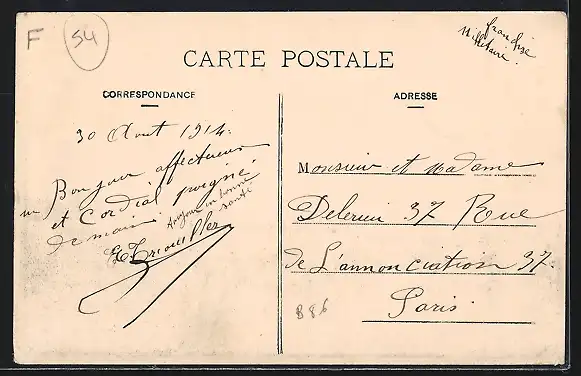 F 54
franchise
Militaire.
CARTE POSTALE
CORRESPONDANCE
30 Aout 1914.
un Bonjour affectueux
et Cordial poigné
de main.
toujours en bonne
santé
ADRESSE
Monsieur et Madame
37 Rue
de L'annonciation 37.
Paris.
886